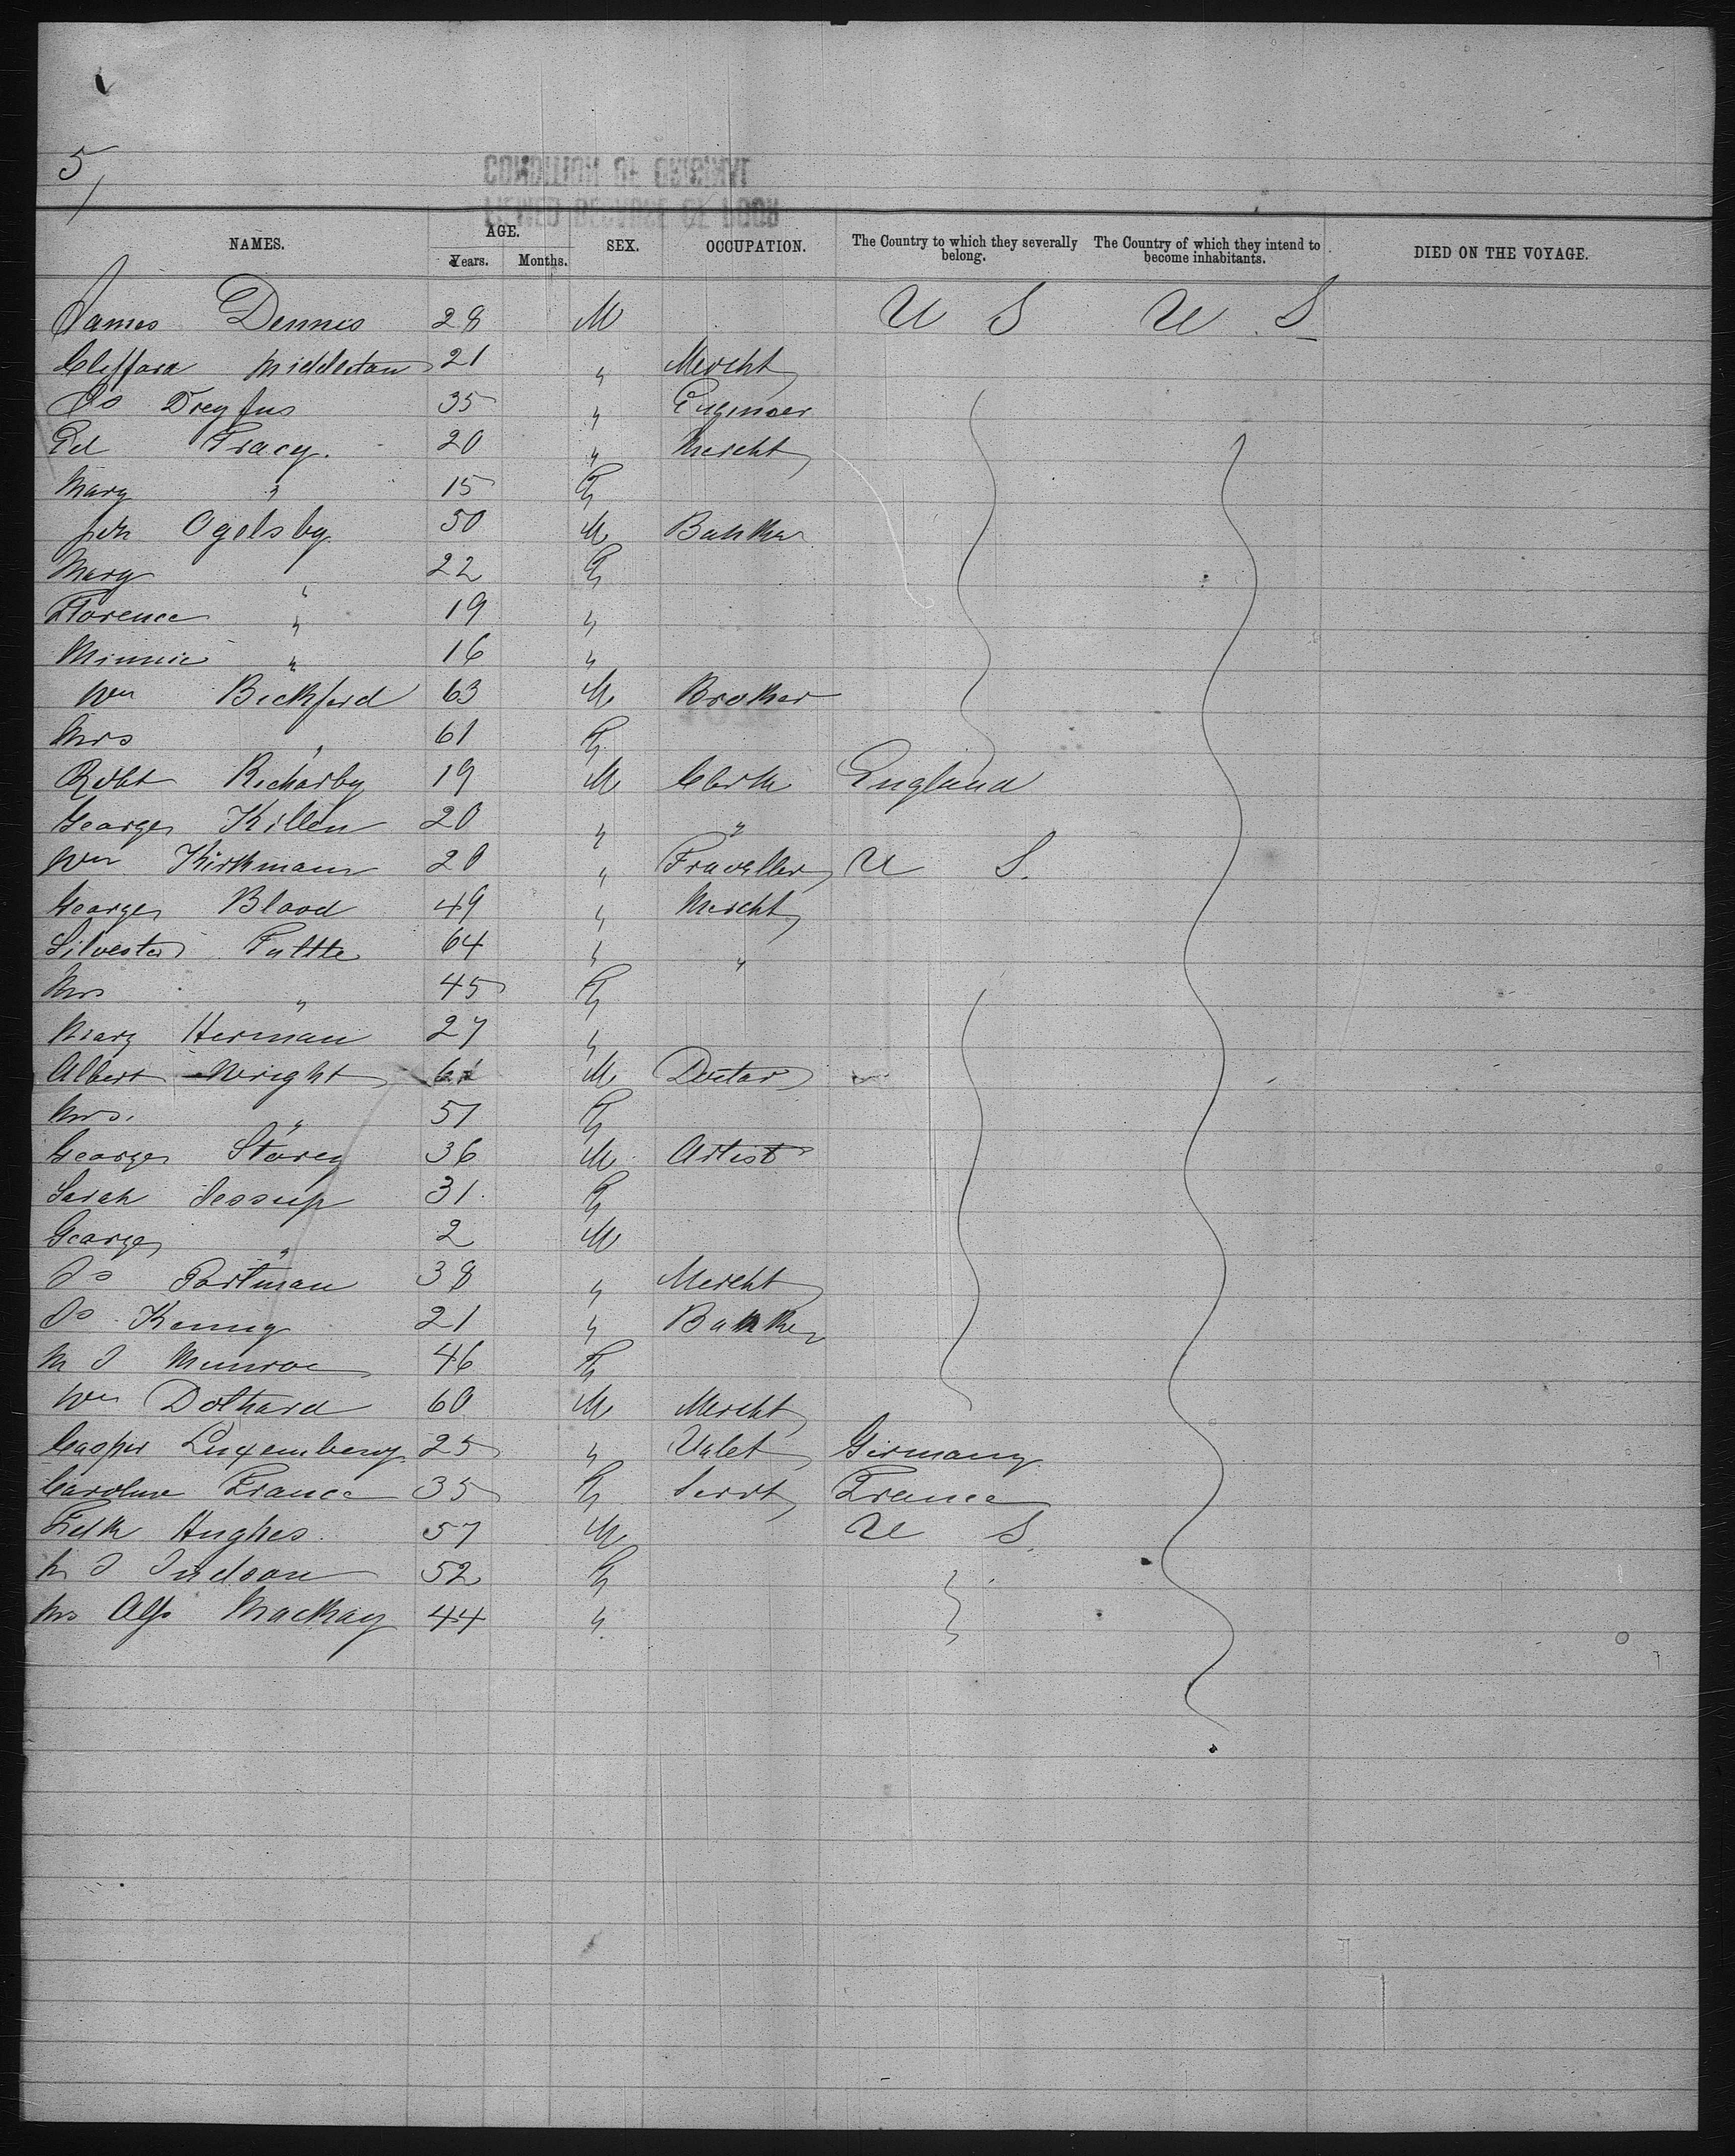 5
CONDITION OF ORIGINAL
FILMED BECAUSE OF POOR
NAMES. AGE. Years. Months. SEX. OCCUPATION. The Country to which they severally belong. The Country of which they intend to become inhabitants. DIED ON THE VOYAGE.
James Dennis 28 M U S U S
Clifford Middleton 21 " Mercht
Js Dreyfus 35 " Engineer
Ed Tracy. 20 " Mercht
Mary " 15 F
Jn Ogelsby 50 M Banker
Mary " 22 F
Florence " 19 "
Minnie " 16 "
Wm Beckford 63 M Broker
Mrs " 61 F
Robt Richarby 19 M Clerk England
George Killen 20 " "
Wm Kirkman 20 " Traveller U S.
George Blood 49 " Mercht
Silvester Tuttle 64 " "
Mrs " 45 F
Mary Herman 27 "
Albert Wright M Doctor
Mrs. " 51 F
George Storey 36 M Artist
Sarah Jessup 31 F
George " 2 M
Js Portman 38 " Mercht
Js Kenny 21 " Banker
M J Munroe 46 F
Wm Dothard 60 M Mercht
Casper Luxemberg 25 " Valet Germany
Caroline France 35 F Servt France
Fredk Hughes 57 M U S.
M J Judson 52 F
Mrs Alf Mackay 44 "